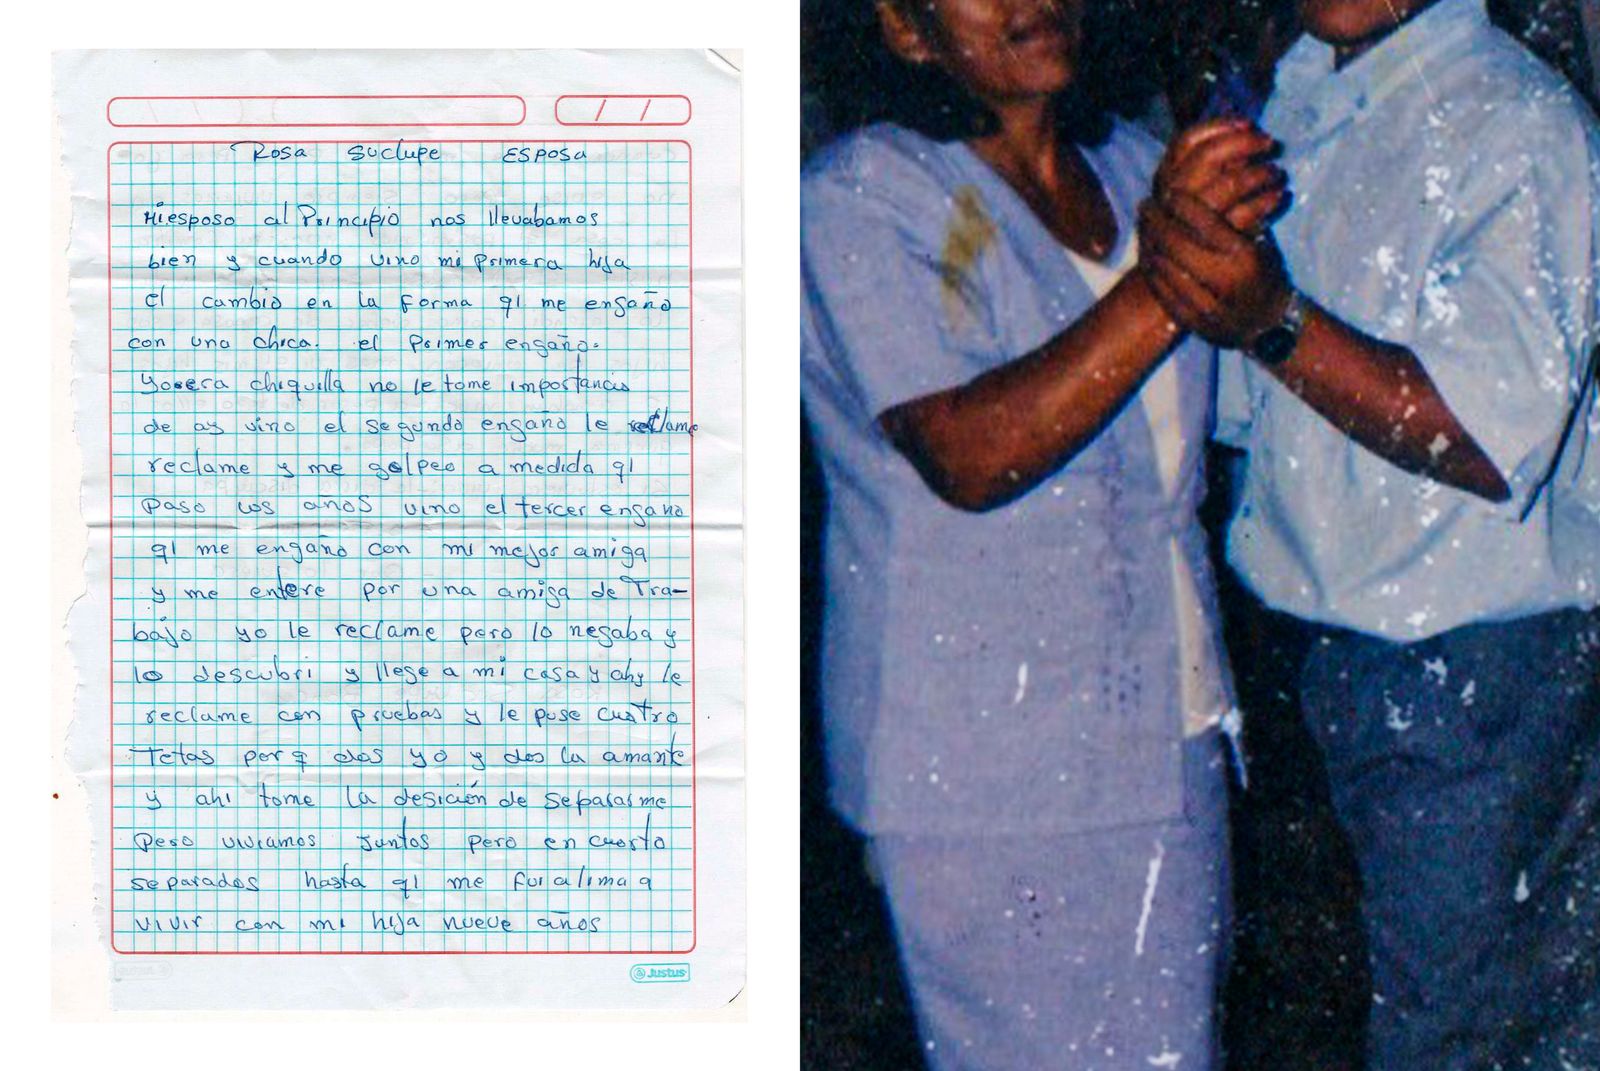 Rosa Suclupe Esposa
Mi esposo al Principio nos llevabamos
bien y cuando vino mi Primera hija
el cambio en la forma qi me engaño
con una chica. el Primer engaño.
Yo era chiquilla no le tome importancia
de ay vino el segundo engaño le reclame
reclame y me golpeo a medida qi
Paso los años vino el tercer engano
qi me engaño con mi mejor amiga
y me entere por una amiga de Tra-
bajo yo le reclame pero lo negaba y
lo descubri y llege a mi casa y ahy le
reclame con pruebas y le puse cuatro
Tetas porq dos yo y dos la amante
y ahi tome la desición de separarme
Pero viviamos Juntos pero en cuarto
separados hasta qi me fui a lima a
vivir con mi hija nueve años
Justus